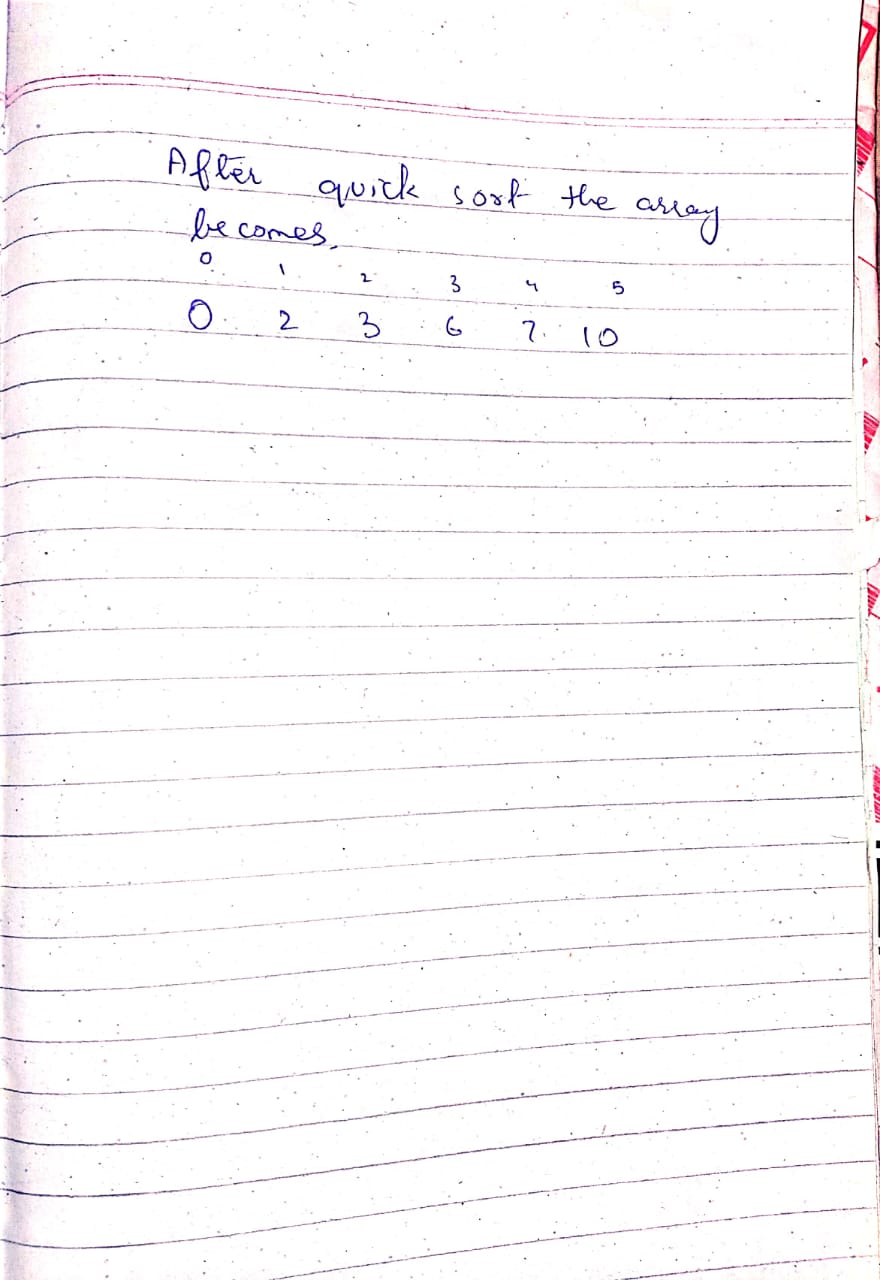 After quick sort the array
becomes,
0 1 2 3 4 5
0 2 3 6 7 10